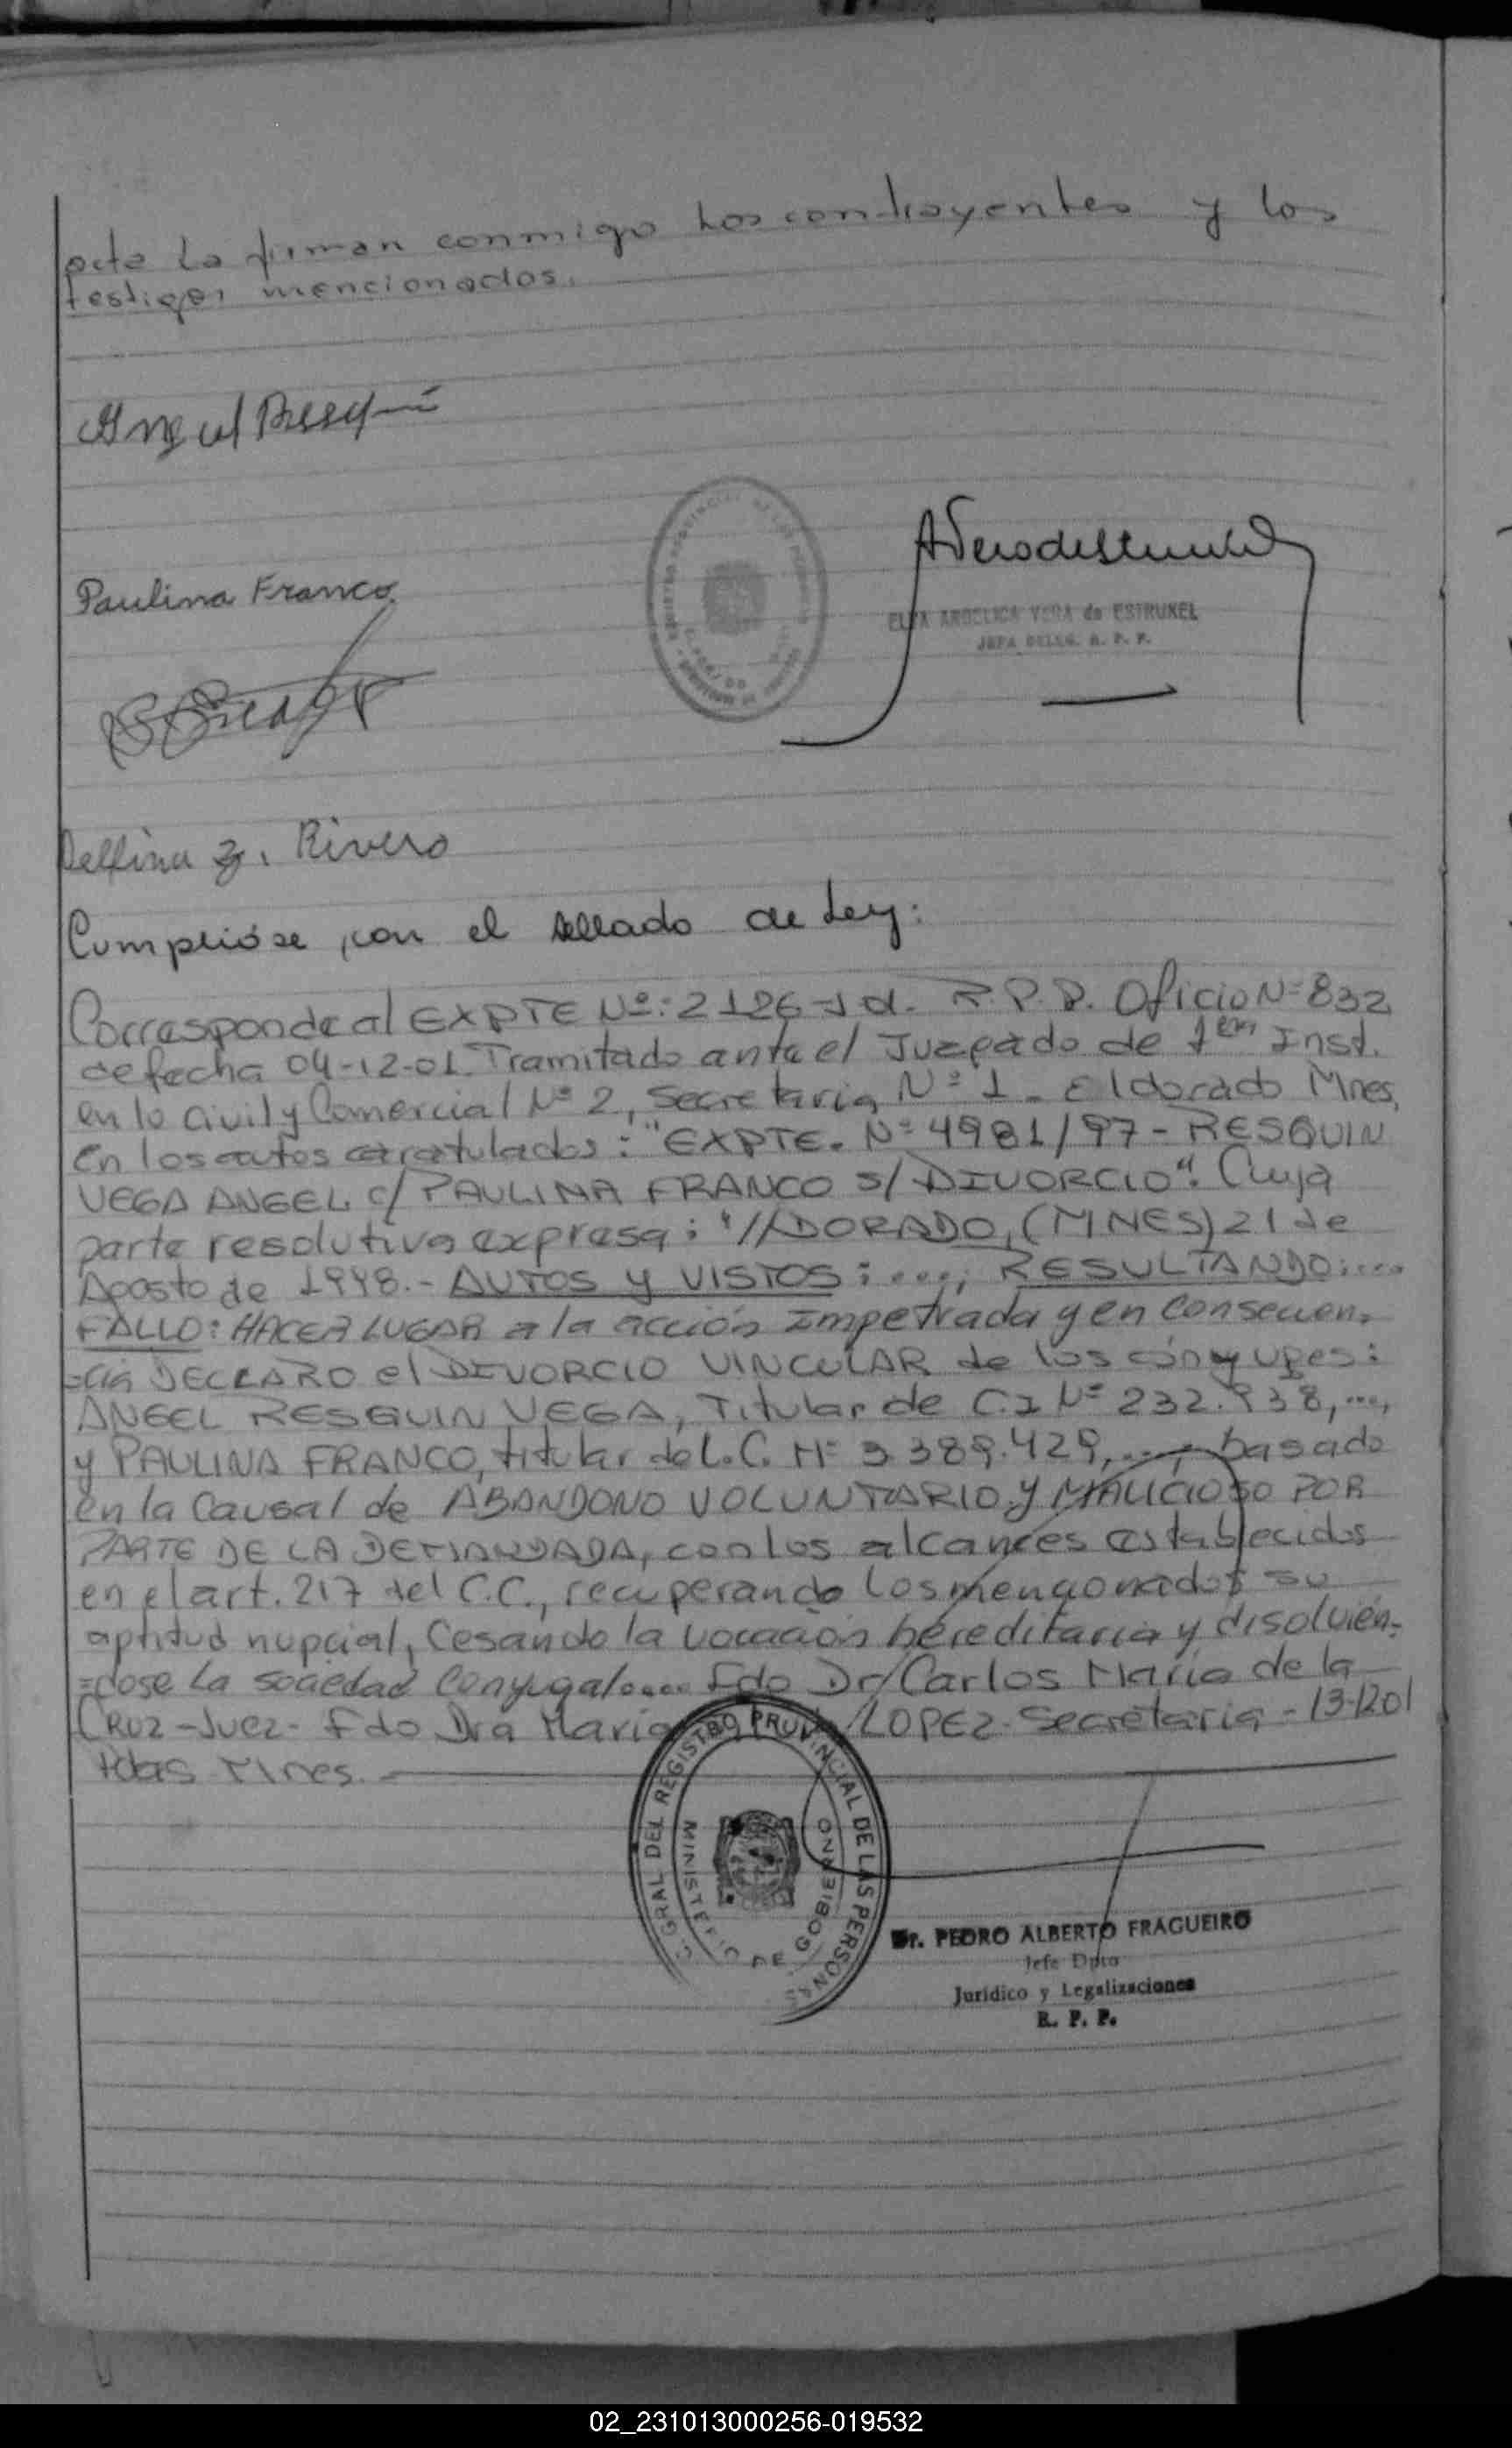 acta la firman conmigo los contrayentes y los
testigos mencionados.
Angel Resquin
Paulina Franco
ELVA ANGELICA VERA de ESTRUKEL
JEFA DELEG. R. P. P.
Delfina Z. Rivero
Cumplióse con el sellado de Ley:
Corresponde al EXPTE Nº: 2126-J d. R.P.P. Oficio Nº 832
de fecha 04-12-01 Tramitado ante el Juzgado de 1era Inst.
en lo Civil y Comercial Nº 2, Secretaria Nº 1 - Eldorado Mnes,
En los autos caratulados: "EXPTE. Nº 4981/97 - RESQUIN
VEGA ANGEL c/ PAULINA FRANCO S/ DIVORCIO". Cuya
parte resolutiva expresa: "//DORADO, (MNES) 21 de
Agosto de 1998.- AUTOS Y VISTOS: ..., RESULTANDO: ....
FALLO: HACER LUGAR a la acción Impetrada y en consecuen-
=cia DECLARO el DIVORCIO VINCULAR de los cónyuges:
ANGEL RESQUIN VEGA, Titular de C.I Nº 232.938, ...,
y PAULINA FRANCO, titular de L.C. Nº 3.389.429, ..., basado
en la Causal de ABANDONO VOLUNTARIO y MALICIOSO POR
PARTE DE LA DEMANDADA, con los alcances establecidos
en el art. 217 del C.C., recuperando los mencionados su
aptitud nupcial, Cesando la vocación hereditaria y disolvién-
=dose la sociedad Conyugal.... Fdo Dr Carlos María de la
CRUZ - Juez - Fdo Dra María LOPEZ - Secretaria - 13-1201
Pdas Mnes.
C. GRAL DEL REGISTRO PROVINCIAL DE LAS PERSONAS
MINISTERIO DE GOBIERNO
Dr. PEDRO ALBERTO FRAGUEIRO
Jefe Dpto
Jurídico y Legalizaciones
R. P. P.
02_231013000256-019532